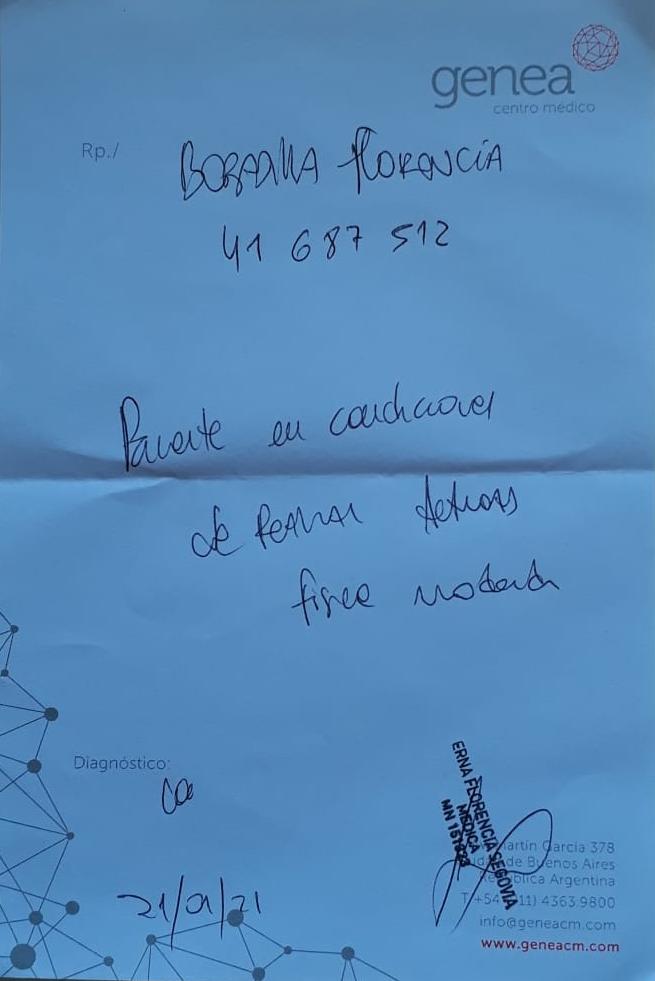 genea
centro médico
Rp./
BOBADILLA FLORENCIA
41 687 512
Paciente en condiciones
de realizar actividad
física moderada
Diagnóstico:
21/01/21
ERNA FLORENCIA SEGOVIA
MEDICA
MN
Martín García 378
de Buenos Aires
República Argentina
4363.9800
info@geneacm.com
www.geneacm.com